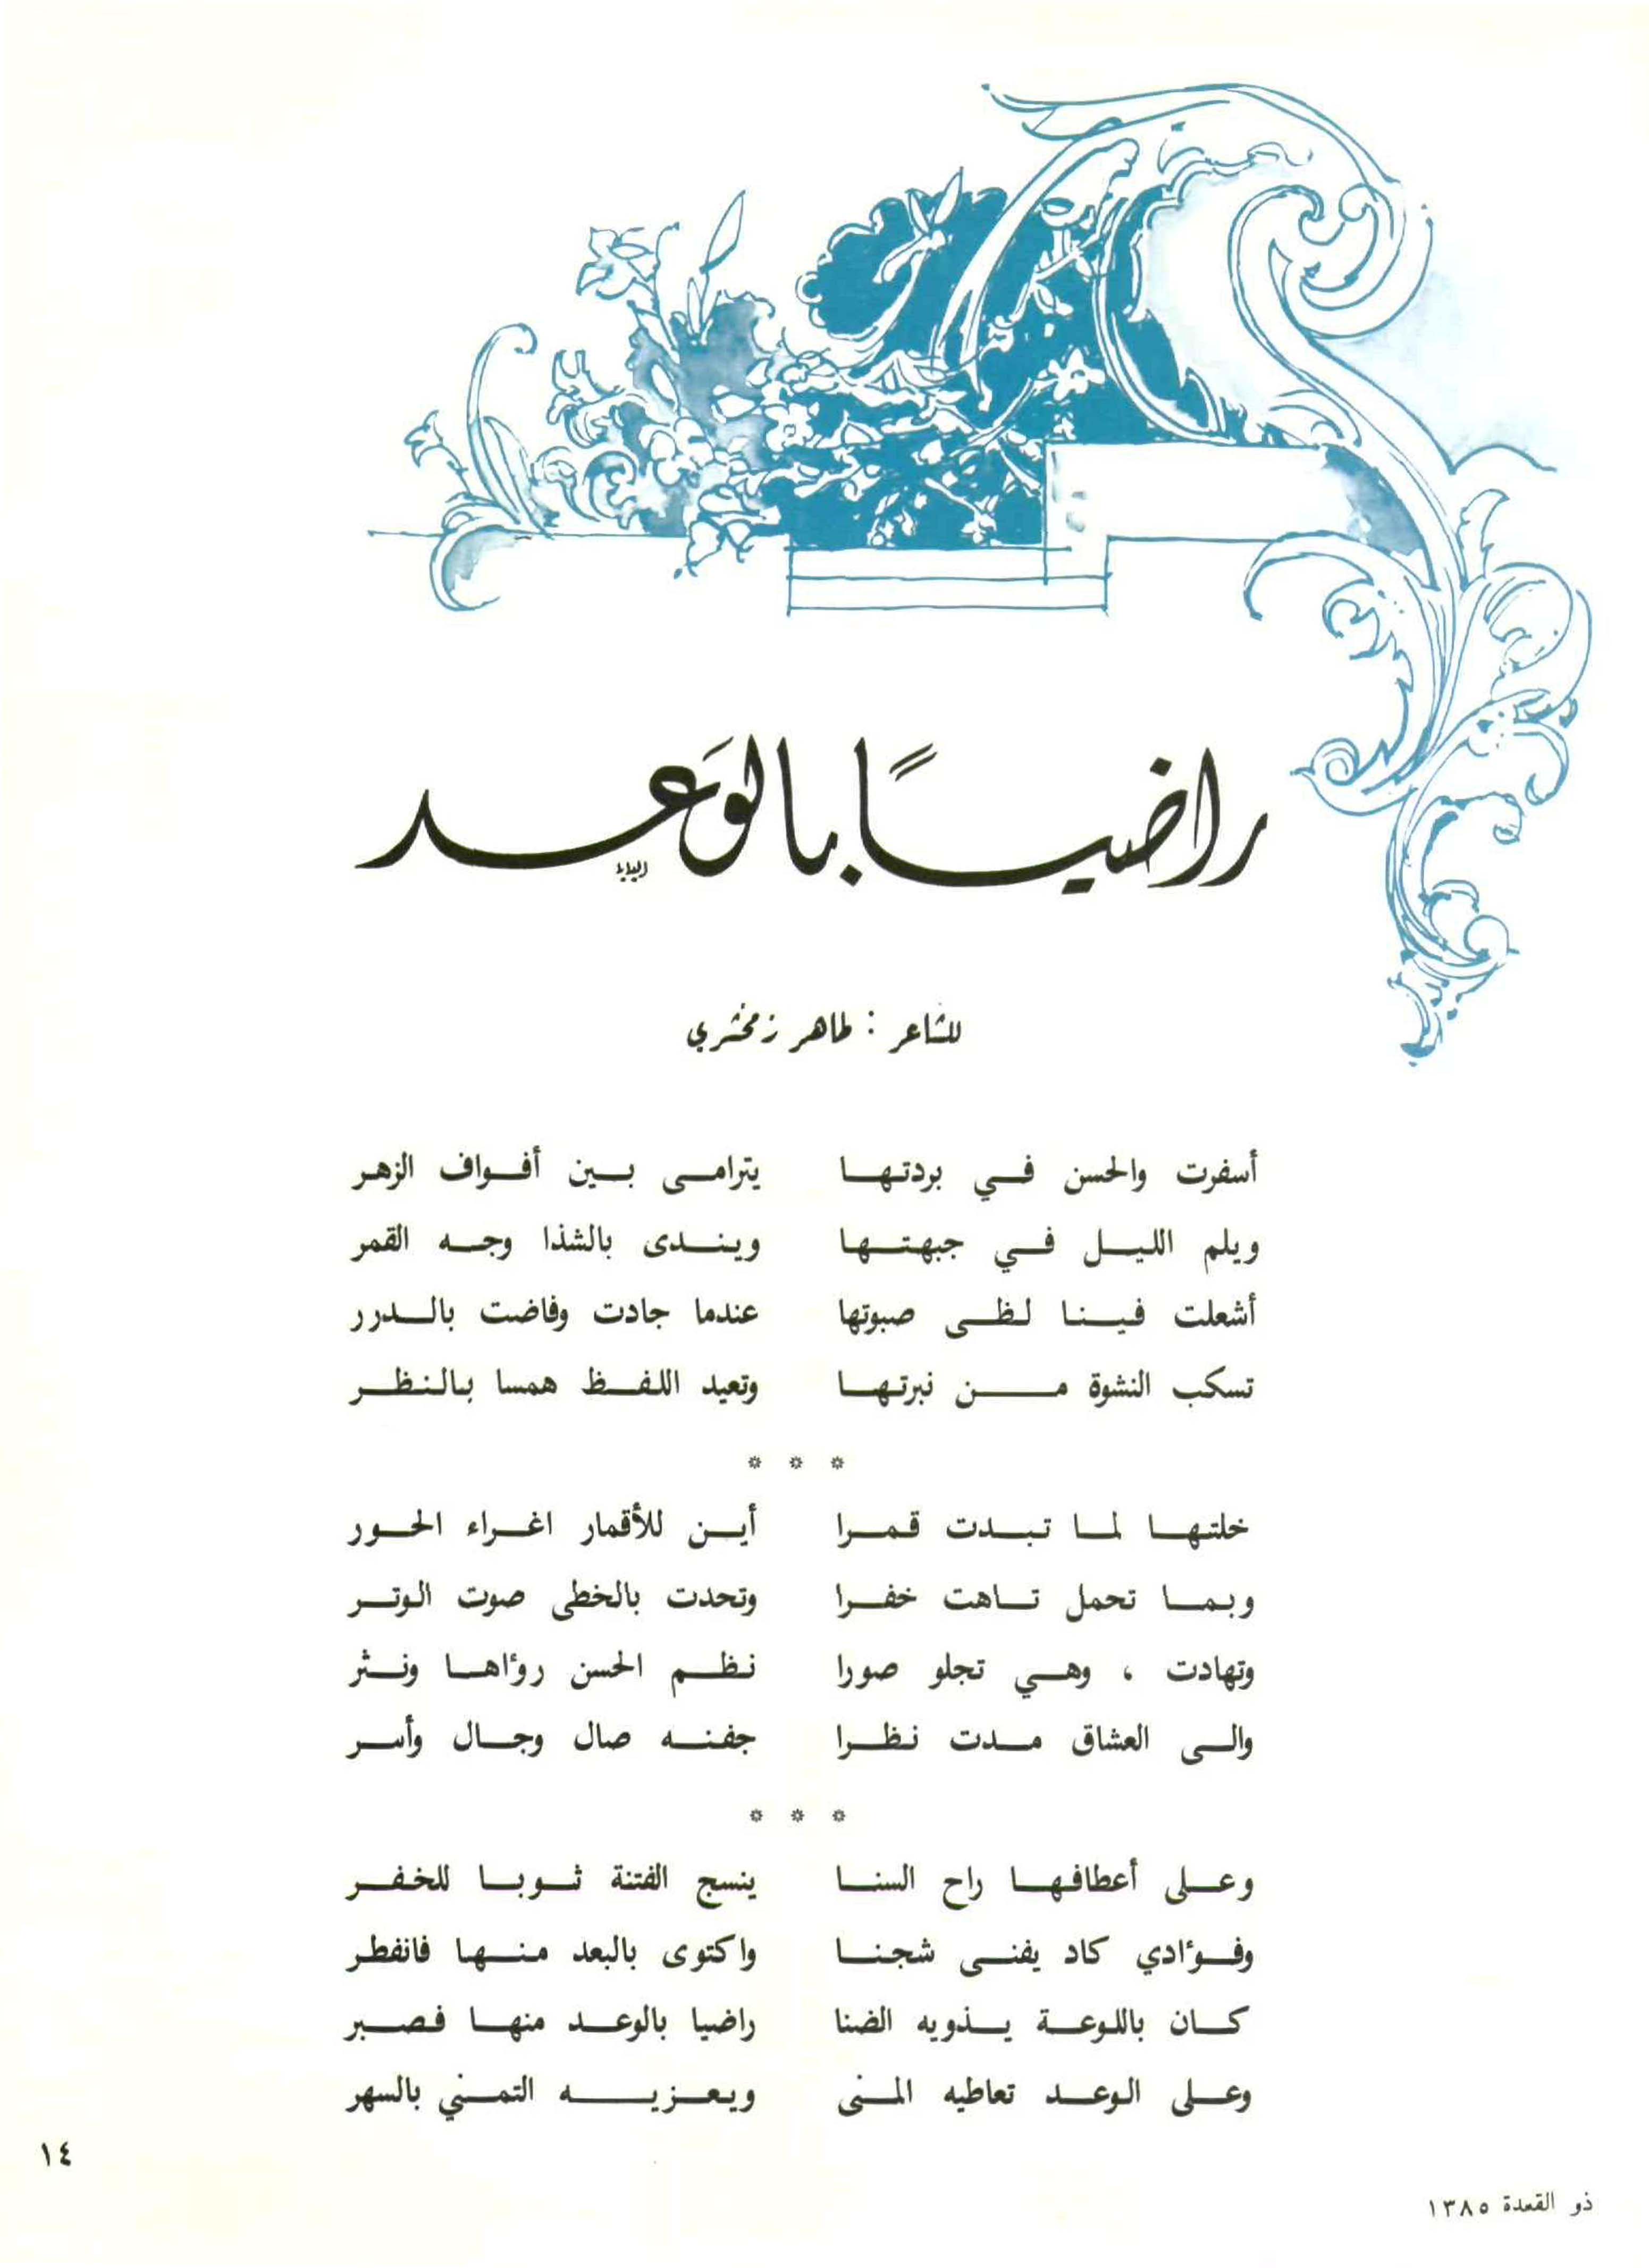 راضيًا بالوَعد
للشاعر : طاهر زمخشري
أسفرت والحسن في بردتها يترامى بين أفواف الزهر
ويلم الليل في جبهتها ويندى بالشذا وجه القمر
أشعلت فينا لظى صبوتها عندما جادت وفاضت بالدرر
تسكب النشوة من نبرتها وتعيد اللفظ همسا بالنظر
* * *
خلتها لما تبدت قمرا أين للأقمار اغراء الحور
وبما تحمل تاهت خفرا وتحدت بالخطى صوت الوتر
وتهادت ، وهي تجلو صورا نظم الحسن رؤاها ونثر
والى العشاق مدت نظرا جفنه صال وجال وأسر
* * *
وعلى أعطافها راح السنا ينسج الفتنة ثوبا للخفر
وفؤادي كاد يفنى شجنا واكتوى بالبعد منها فانفطر
كان باللوعة يذويه الضنا راضيا بالوعد منها فصبر
وعلى الوعد تعاطيه المنى ويعزيه التمني بالسهر
١٤
ذو القعدة ١٣٨٥